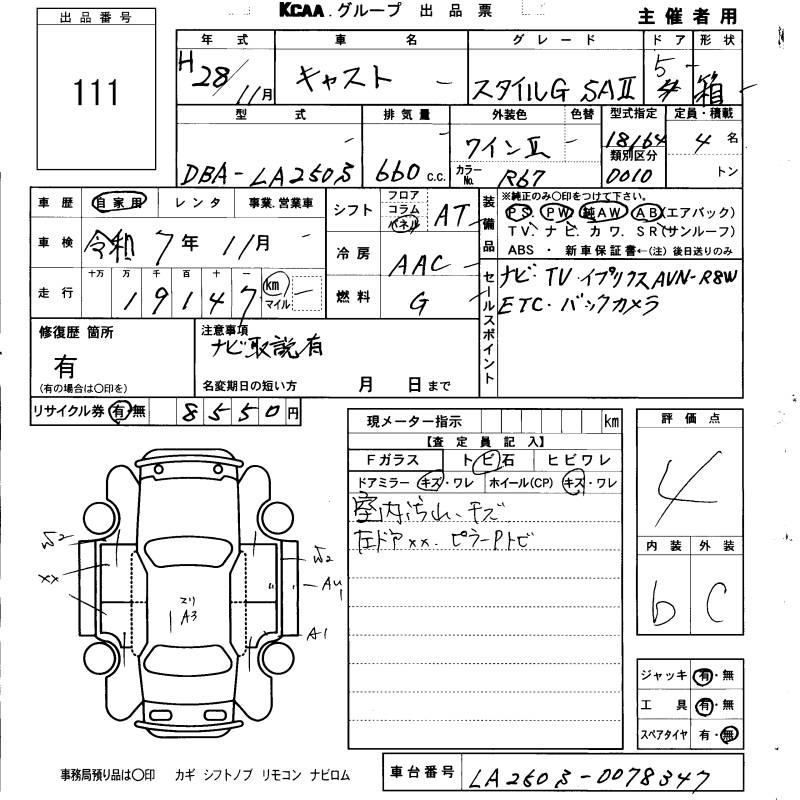 KCAA.グループ 出品票
主催者用
出品番号
111
年式 車名 グレード ドア 形状
H28/11月 キャスト スタイルG SAⅡ 5 箱
型式 排気量 外装色 色替 型式指定 定員・積載
DBA-LA250S 660 c.c. ワインⅡ 18164 4名
カラーNo. R67 類別区分 0010 トン
車歴 自家用 レンタ 事業.営業車
車検 令和7年11月
十万 万 千 百 十 一
走行 19147 km マイル
シフト フロア コラム パネル AT
冷房 AAC
燃料 G
装備品
※純正のみ○印をつけて下さい。
PS, PW, 純AW, AB(エアバック)
TV、ナビ、カワ、SR(サンルーフ)
ABS ・ 新車保証書←(注) 後日送りのみ
セールスポイント
ナビ・TV・イプリクスAVN-R8W
ETC・バックカメラ
修復歴 箇所
有
(有の場合は○印を)
注意事項
ナビ取説有
名変期日の短い方 月 日まで
リサイクル券 有・無 8550円
現メーター指示 km
【査定員記入】
Fガラス トビ石 ヒビワレ
ドアミラー キズ・ワレ ホイール(CP) キズ・ワレ
室内汚れ、キズ
左ドアxx. ピラーPトビ
評価点
4
内装 外装
b C
ジャッキ 有・無
工具 有・無
スペアタイヤ 有・無
xx
A3
A1
事務局預り品は○印 カギ シフトノブ リモコン ナビロム
車台番号 LA250S-0078347